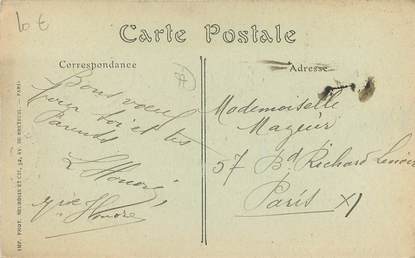 10 €
Carte Postale
Correspondance
Adresse
Bons vœux
pour toi et tes
Parents
L Honoré
Honoré
Mademoiselle
Mageur
57 Bd Richard Lenoir
Paris XI
IMP. PHOT. NEURDEIN ET CIE, 52, AV. DE BRETEUIL — PARIS